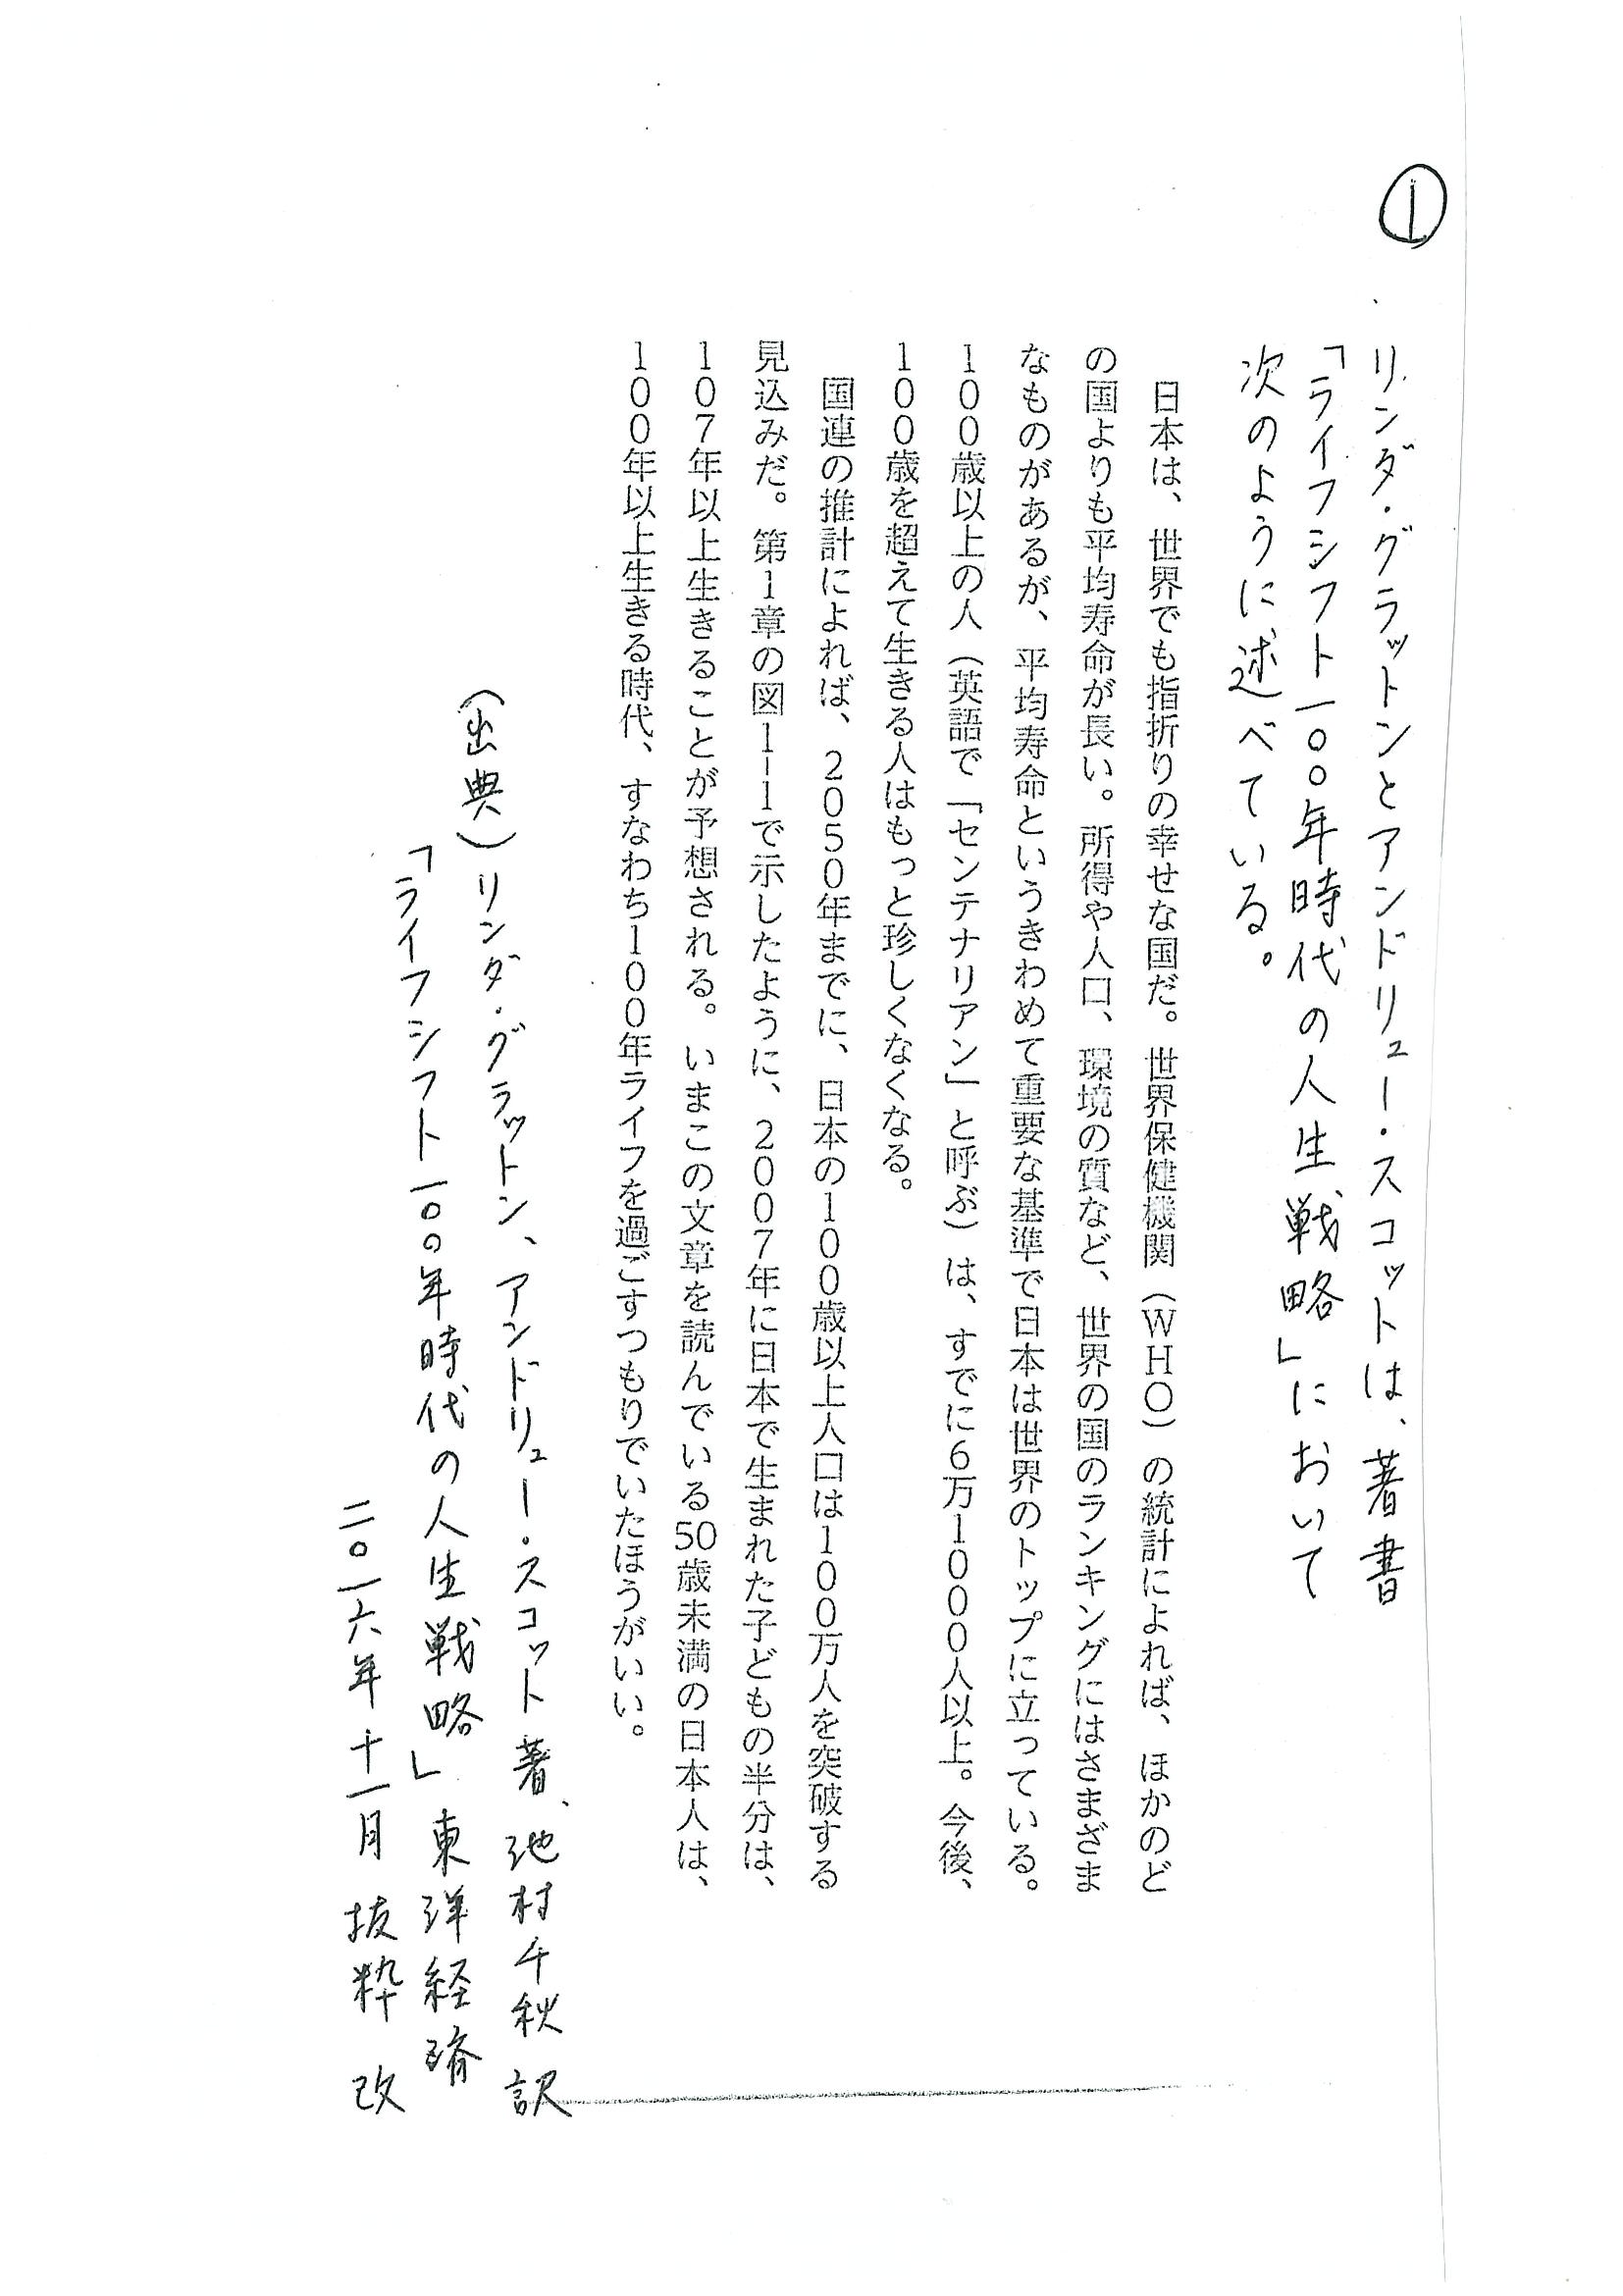 ①
リンダ・グラットンとアンドリュー・スコットは、著書
「ライフシフト一〇〇年時代の人生戦略」において
次のように述べている。
日本は、世界でも指折りの幸せな国だ。世界保健機関（WHO）の統計によれば、ほかのど
の国よりも平均寿命が長い。所得や人口、環境の質など、世界の国のランキングにはさまざま
なものがあるが、平均寿命というきわめて重要な基準で日本は世界のトップに立っている。
100歳以上の人（英語で「センテナリアン」と呼ぶ）は、すでに6万1000人以上。今後、
100歳を超えて生きる人はもっと珍しくなくなる。
国連の推計によれば、2050年までに、日本の100歳以上人口は100万人を突破する
見込みだ。第1章の図1-1で示したように、2007年に日本で生まれた子どもの半分は、
107年以上生きることが予想される。いまこの文章を読んでいる50歳未満の日本人は、
100年以上生きる時代、すなわち100年ライフを過ごすつもりでいたほうがいい。
（出典）リンダ・グラットン、アンドリュー・スコット著、池村千秋訳
「ライフシフト一〇〇年時代の人生戦略」東洋経済
二〇一六年十一月抜粋改